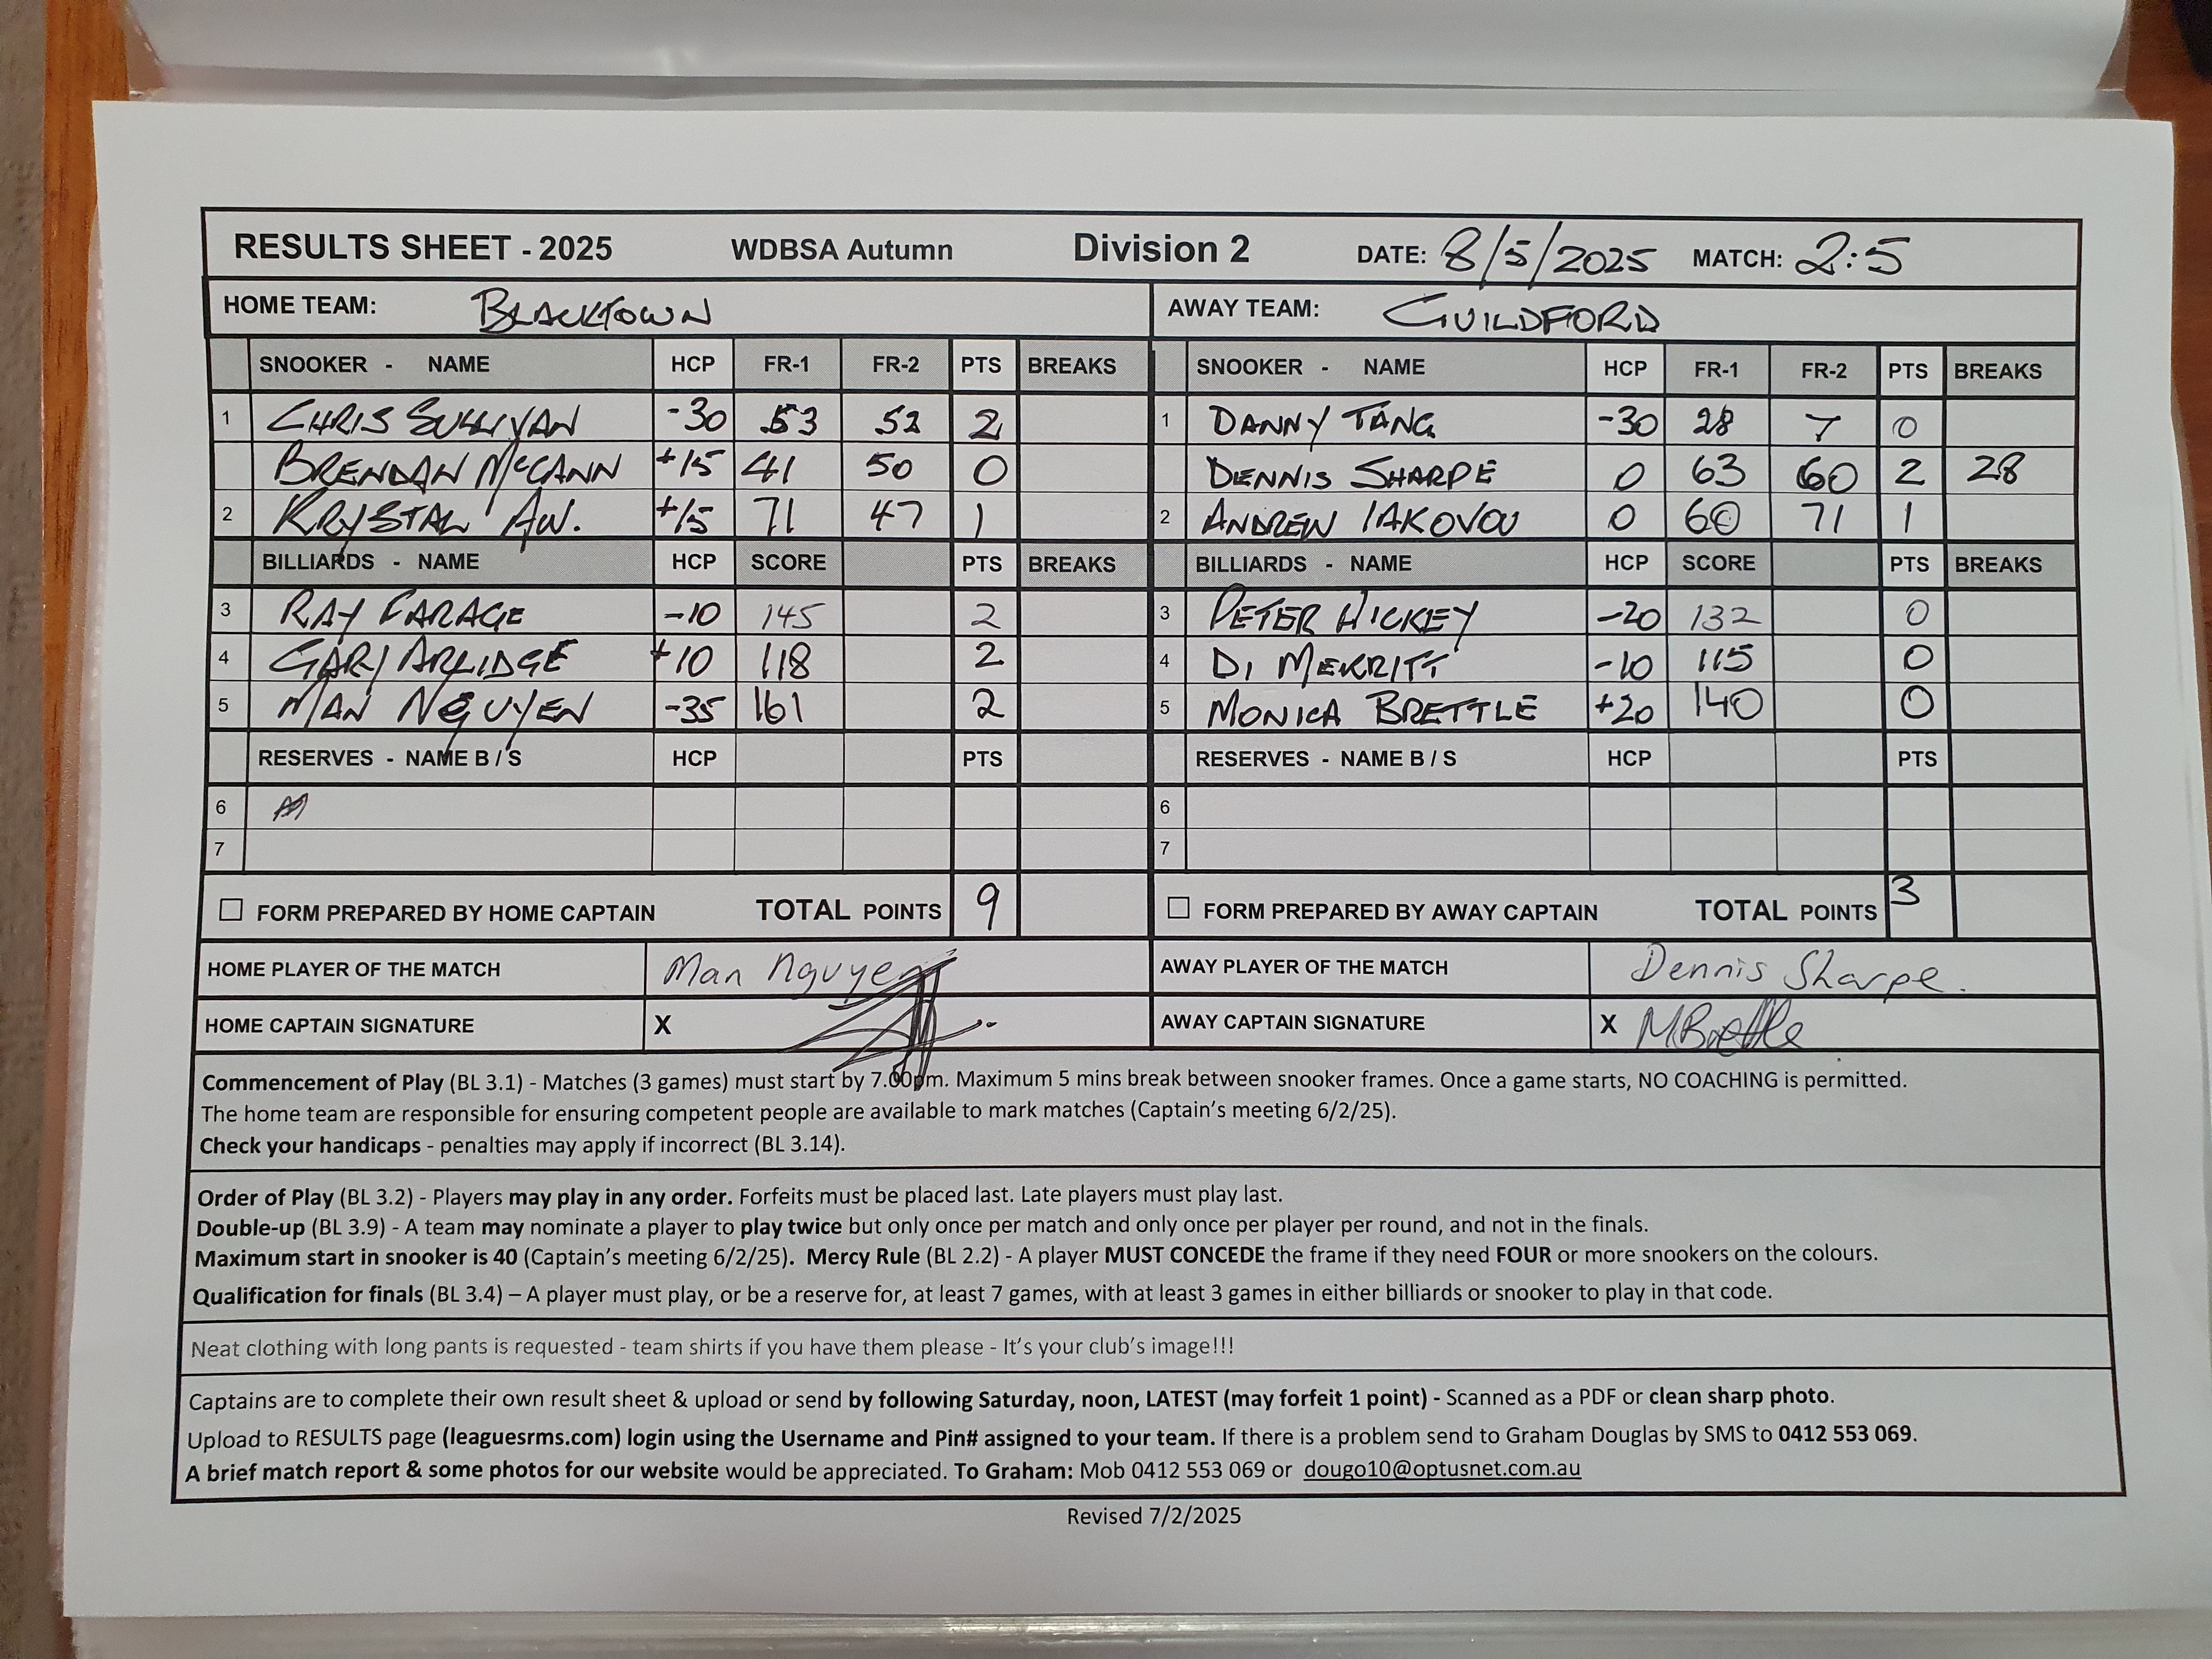 RESULTS SHEET - 2025 WDBSA Autumn Division 2 DATE: 8/5/2025 MATCH: 2:5
HOME TEAM: BLACKTOWN AWAY TEAM: GUILDFORD
SNOOKER - NAME HCP FR-1 FR-2 PTS BREAKS SNOOKER - NAME HCP FR-1 FR-2 PTS BREAKS
1 CHRIS SULLIVAN -30 53 52 2 1 DANNY TANG -30 28 7 0
BRENDAN McCANN +15 41 50 0 DENNIS SHARPE 0 63 60 2 28
2 KRYSTAL AW. +15 71 47 1 2 ANDREW IAKOVOU 0 60 71 1
BILLIARDS - NAME HCP SCORE PTS BREAKS BILLIARDS - NAME HCP SCORE PTS BREAKS
3 RAY FARAGE -10 145 2 3 PETER HICKEY -20 132 0
4 GARY ARLIDGE +10 118 2 4 DI MERRITT -10 115 0
5 MAN NGUYEN -35 161 2 5 MONICA BRETTLE +20 140 0
RESERVES - NAME B / S HCP PTS RESERVES - NAME B / S HCP PTS
6 6
7 7
FORM PREPARED BY HOME CAPTAIN TOTAL POINTS 9 FORM PREPARED BY AWAY CAPTAIN TOTAL POINTS 3
HOME PLAYER OF THE MATCH Man Nguyen AWAY PLAYER OF THE MATCH Dennis Sharpe.
HOME CAPTAIN SIGNATURE X AWAY CAPTAIN SIGNATURE X MBrettle
Commencement of Play (BL 3.1) - Matches (3 games) must start by 7.00pm. Maximum 5 mins break between snooker frames. Once a game starts, NO COACHING is permitted.
The home team are responsible for ensuring competent people are available to mark matches (Captain's meeting 6/2/25).
Check your handicaps - penalties may apply if incorrect (BL 3.14).
Order of Play (BL 3.2) - Players may play in any order. Forfeits must be placed last. Late players must play last.
Double-up (BL 3.9) - A team may nominate a player to play twice but only once per match and only once per player per round, and not in the finals.
Maximum start in snooker is 40 (Captain's meeting 6/2/25). Mercy Rule (BL 2.2) - A player MUST CONCEDE the frame if they need FOUR or more snookers on the colours.
Qualification for finals (BL 3.4) – A player must play, or be a reserve for, at least 7 games, with at least 3 games in either billiards or snooker to play in that code.
Neat clothing with long pants is requested - team shirts if you have them please - It's your club's image!!!
Captains are to complete their own result sheet & upload or send by following Saturday, noon, LATEST (may forfeit 1 point) - Scanned as a PDF or clean sharp photo.
Upload to RESULTS page (leaguesrms.com) login using the Username and Pin# assigned to your team. If there is a problem send to Graham Douglas by SMS to 0412 553 069.
A brief match report & some photos for our website would be appreciated. To Graham: Mob 0412 553 069 or dougo10@optusnet.com.au
Revised 7/2/2025